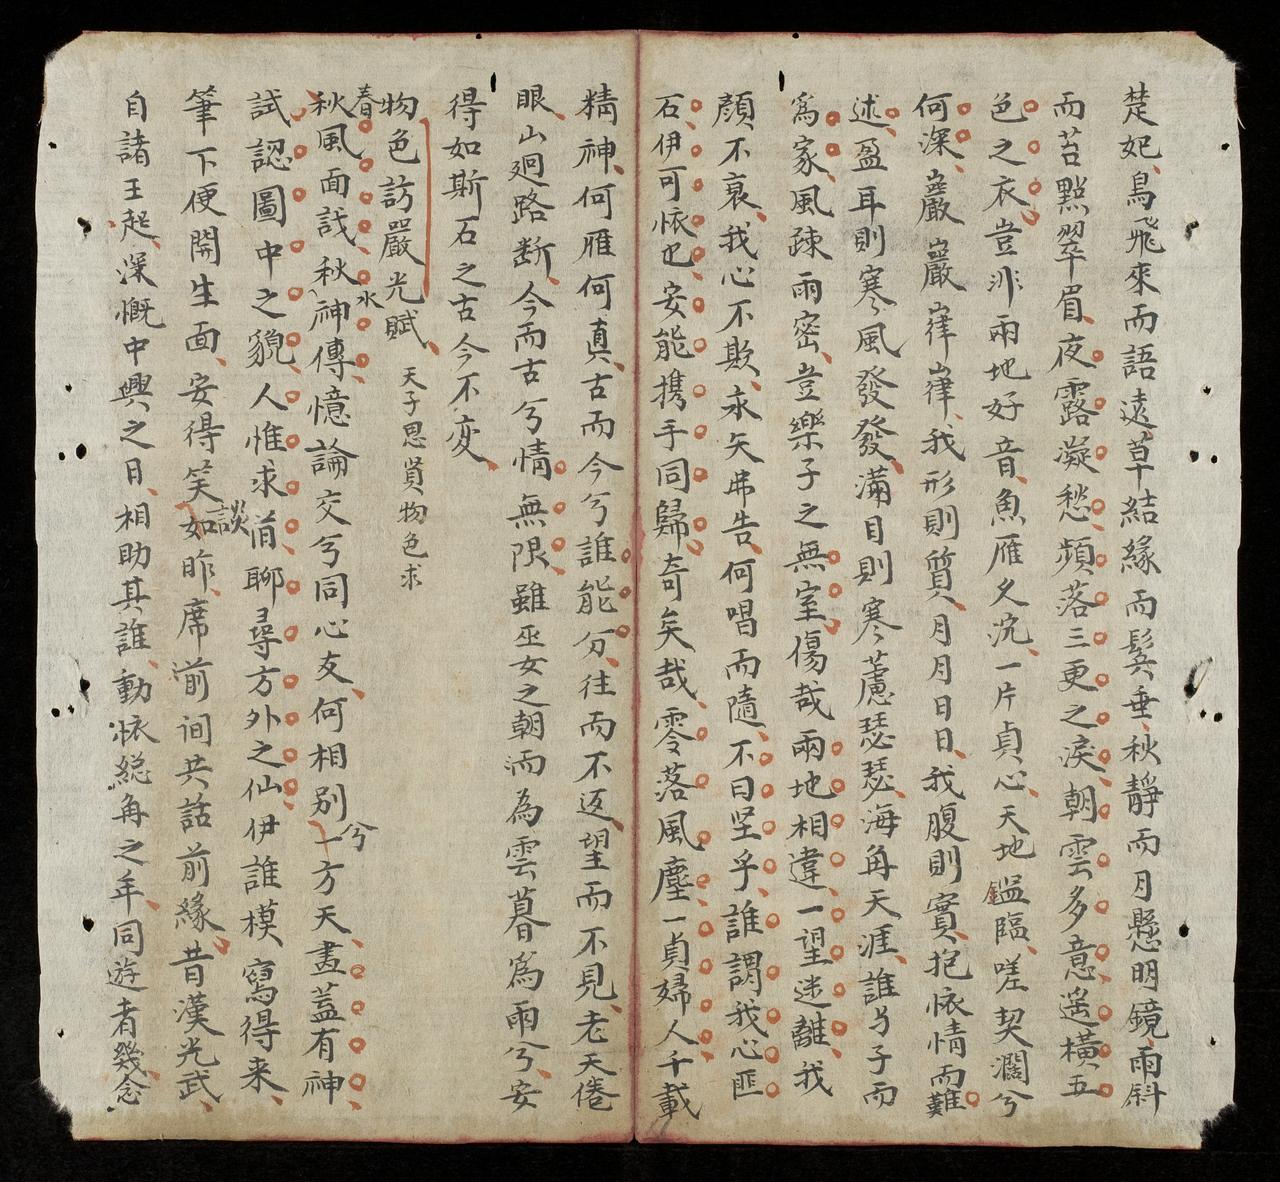 楚妃鳥飛來而語遠草結緣而鬂垂秋靜而月懸明鏡雨斜
而苔點翠眉夜露凝愁頻落三更之淚朝雲多意遙橫五
色之衣豈非兩地好音魚雁久沉一片貞心天地鑑臨嗟契濶兮
何深巖巖嵂嵂我形則質月月日日我腹則實抱依情而難
述盈耳則寒風發發滿目則寒蘆瑟瑟海角天涯誰与子而
為家風踈雨密豈樂子之無室傷哉兩地相違一望迷離我
顏不衰我心不欺永矢弗告何唱而隨不曰坚乎誰謂我心匪
石伊可依也安能携手同歸奇矣哉零落風塵一貞婦人千載
精神何雁何真古而今兮誰能分往而不返望而不見老天倦
眼山廻路断今而古兮情無限雖巫女之朝而為雲暮為雨兮安
得如斯石之古今不变
物色訪嚴光賦 天子思賢物色求
春
秋風面戔秋神傳憶論交兮同心友何相別一方天盡盖有神
水
兮
試認圖中之貌人惟求旧聊尋方外之仙伊誰模寫得来
筆下便開生面安得笑如昨席前间共話前緣昔漢光武
談
自諸王起深慨中興之日相助其誰動依総角之年同遊者幾念